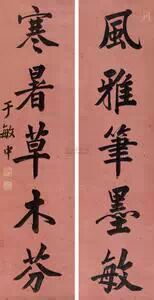 風雅筆墨敏
寒暑草木芬
于敏中